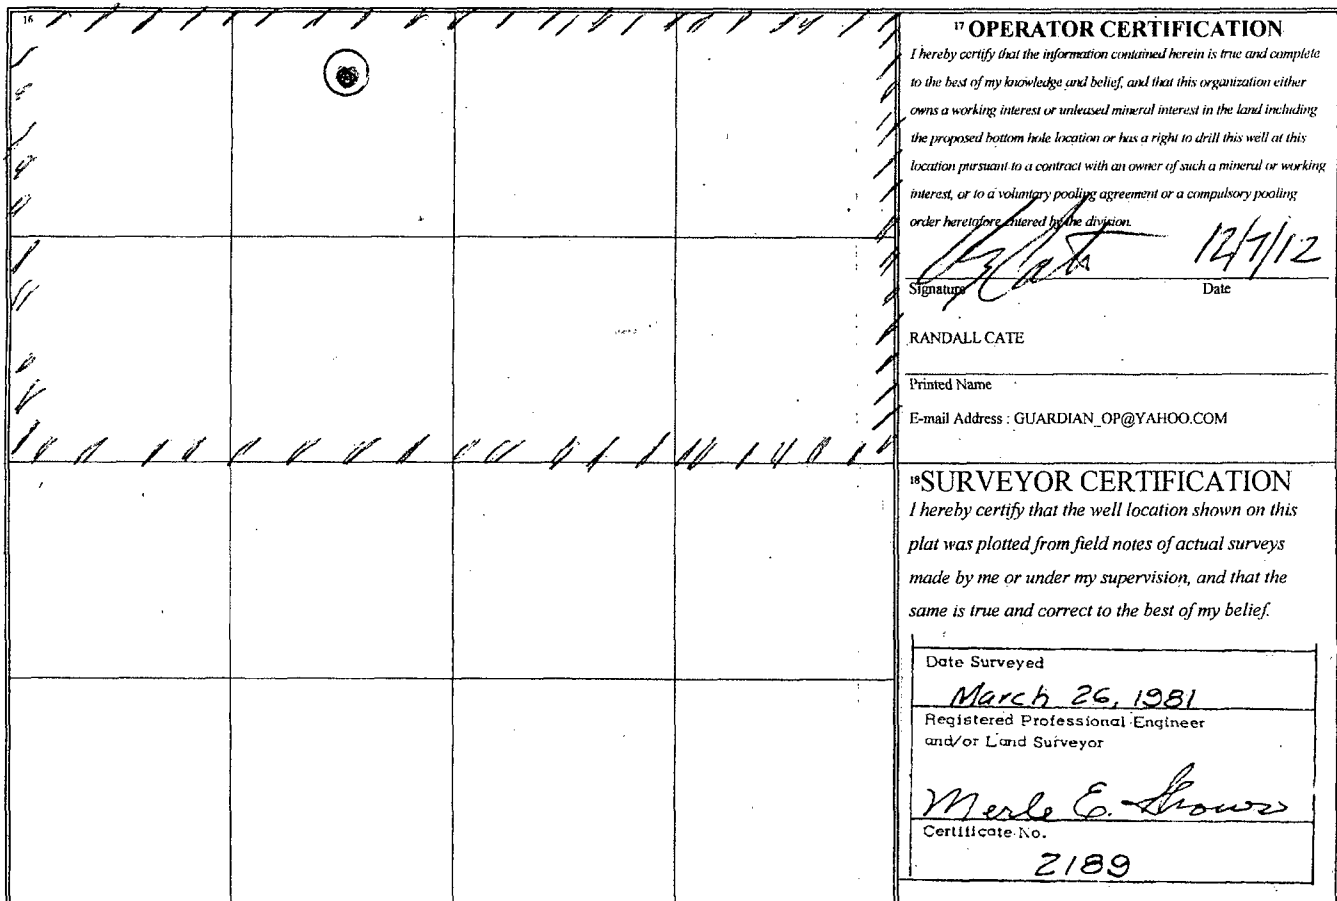 16
17 OPERATOR CERTIFICATION
I hereby certify that the information contained herein is true and complete
to the best of my knowledge and belief, and that this organization either
owns a working interest or unleased mineral interest in the land including
the proposed bottom hole location or has a right to drill this well at this
location pursuant to a contract with an owner of such a mineral or working
interest, or to a voluntary pooling agreement or a compulsory pooling
order heretofore entered by the division.
12/7/12
Signature Date
RANDALL CATE
Printed Name
E-mail Address : GUARDIAN_OP@YAHOO.COM
18 SURVEYOR CERTIFICATION
I hereby certify that the well location shown on this
plat was plotted from field notes of actual surveys
made by me or under my supervision, and that the
same is true and correct to the best of my belief.
Date Surveyed
March 26, 1981
Registered Professional Engineer
and/or Land Surveyor
Merle E.
Certificate No.
2189